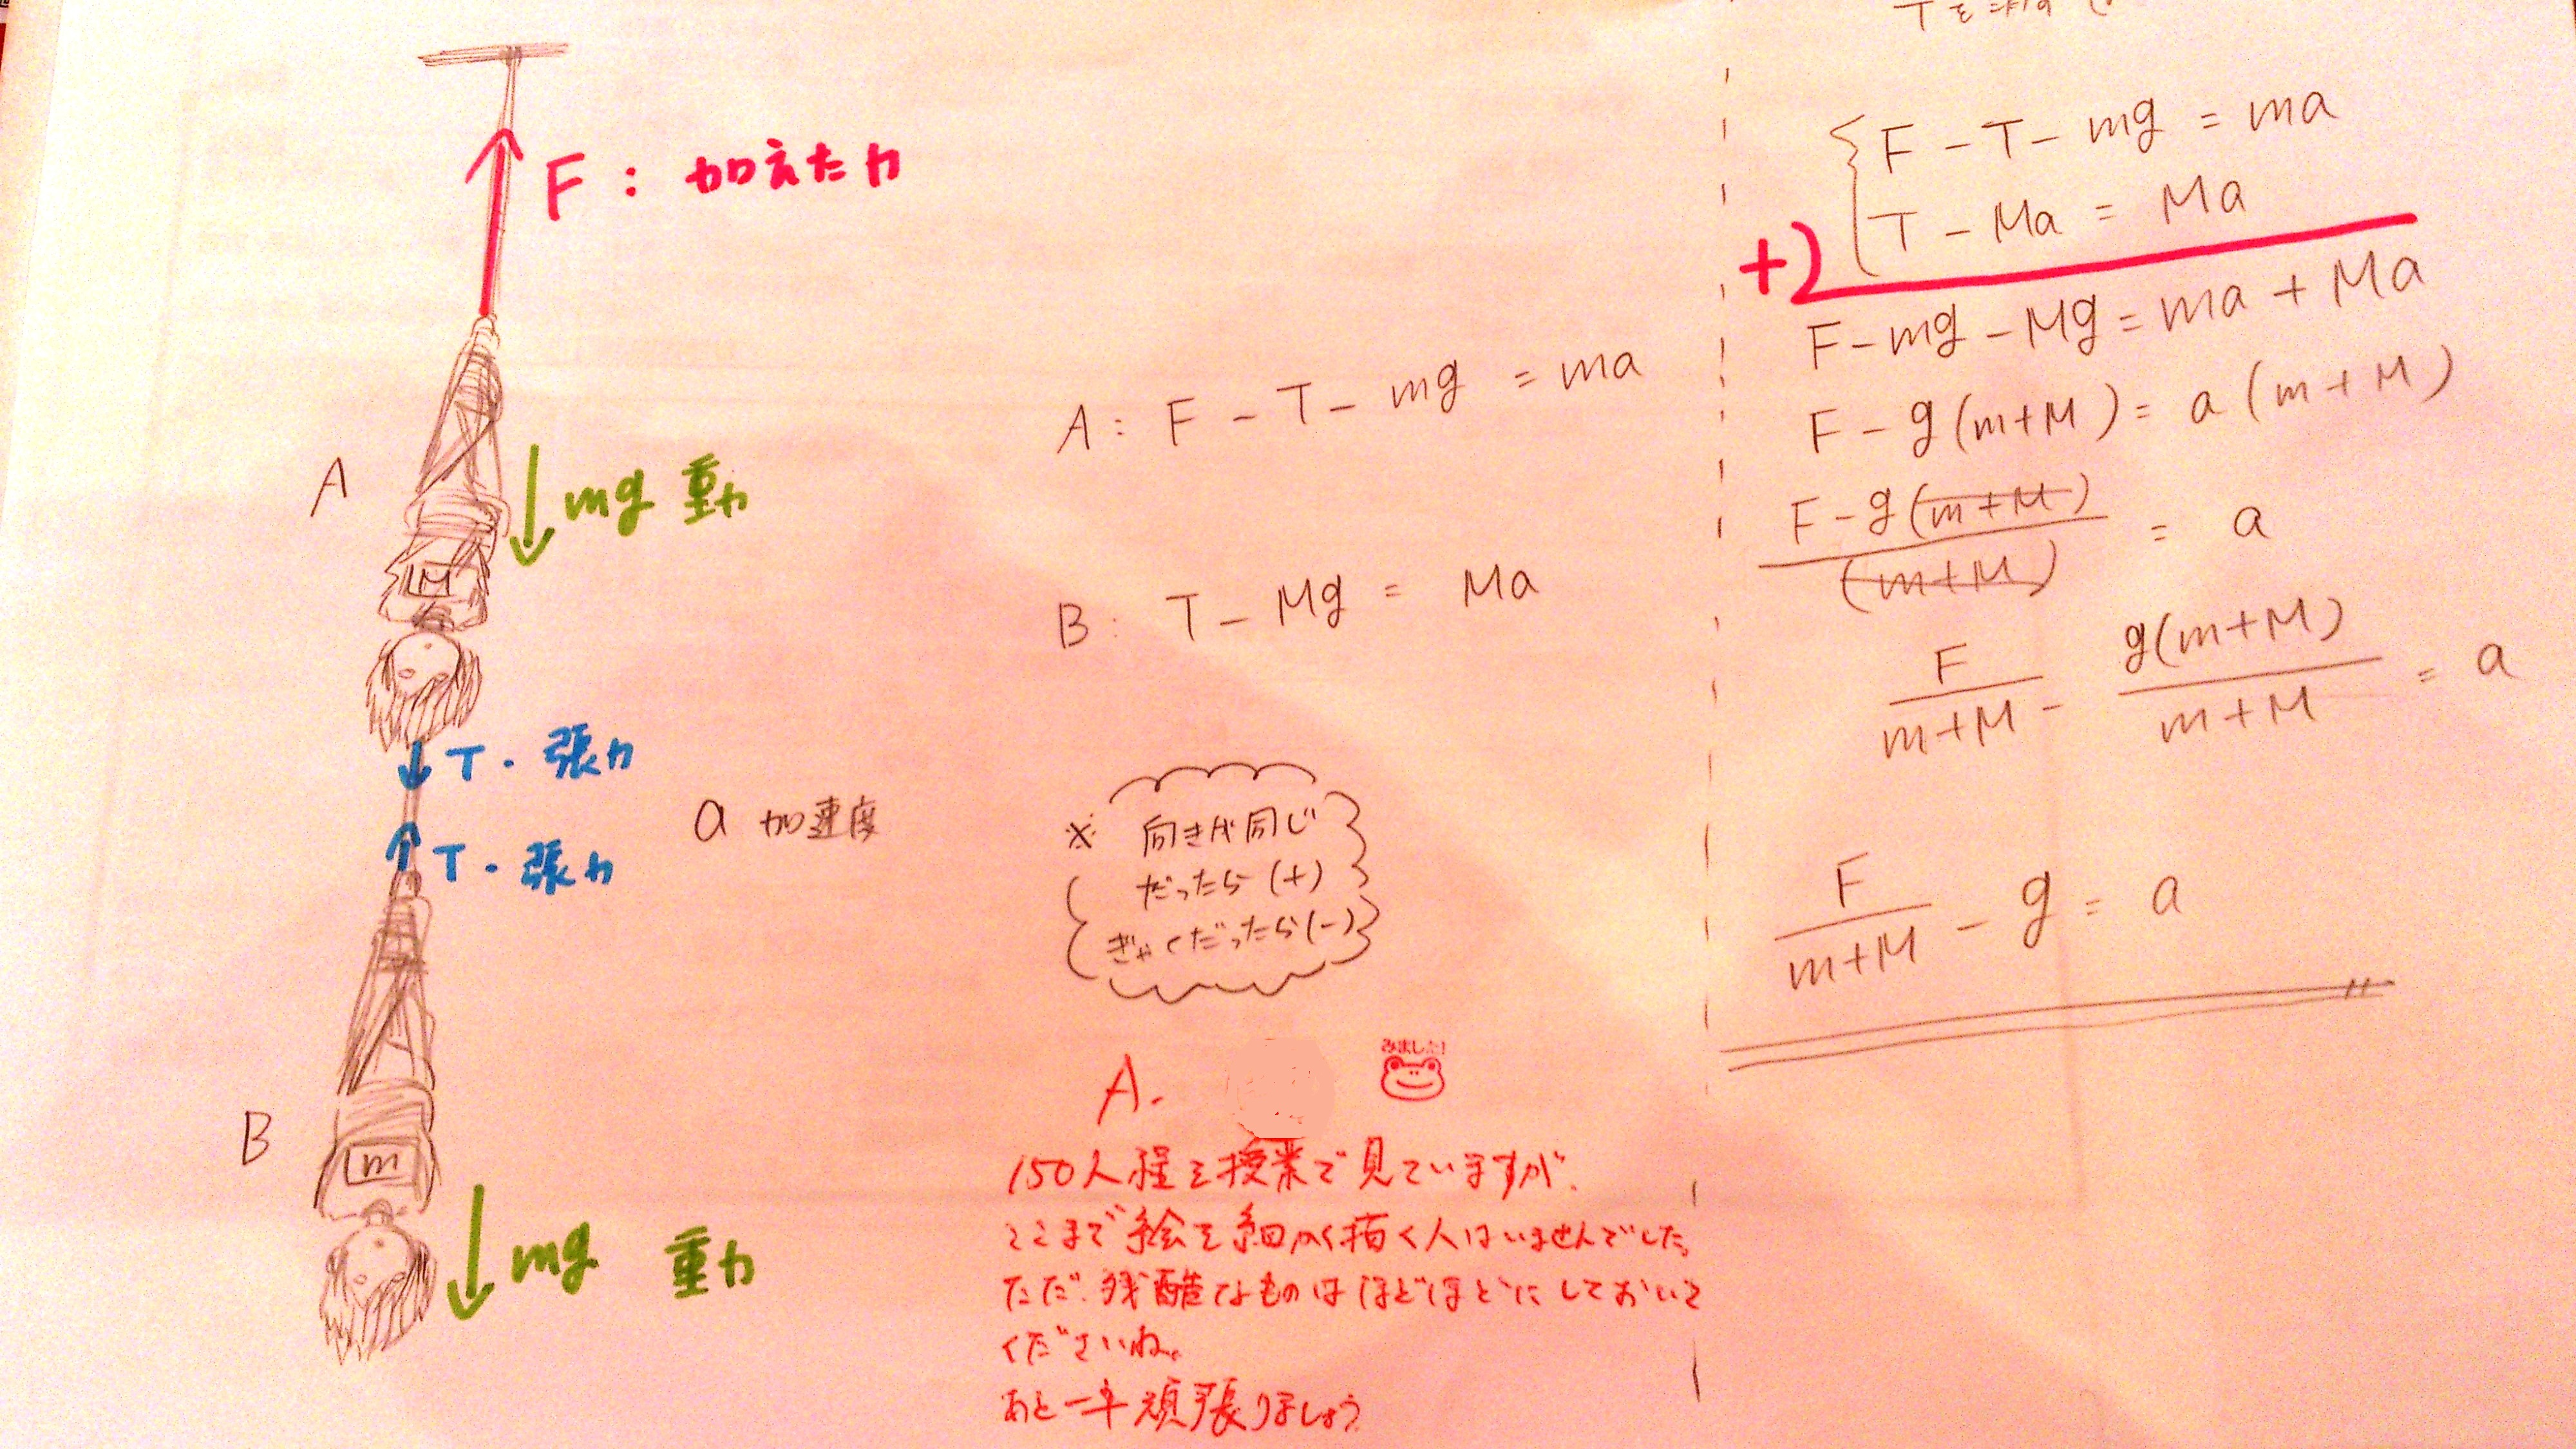 F : 加えた力
A
M
mg 重力
T・張力
T・張力
a 加速度
B
m
mg 重力
A : F - T - mg = ma
B : T - Mg = Ma
※ 向きが同じ
だったら (+)
ぎゃくだったら (-)
A-
150人程を授業で見ていますが、
ここまで絵を細かく描く人はいませんでした。
ただ、残酷なものはほどほどにしておいて
くださいね。
あと一年頑張りましょう
F - T - mg = ma
+) T - Ma = Ma
F - mg - Mg = ma + Ma
F - g(m+M) = a(m+M)
F - g(m+M) / (m+M) = a
F / m+M - g(m+M) / m+M = a
F / m+M - g = a